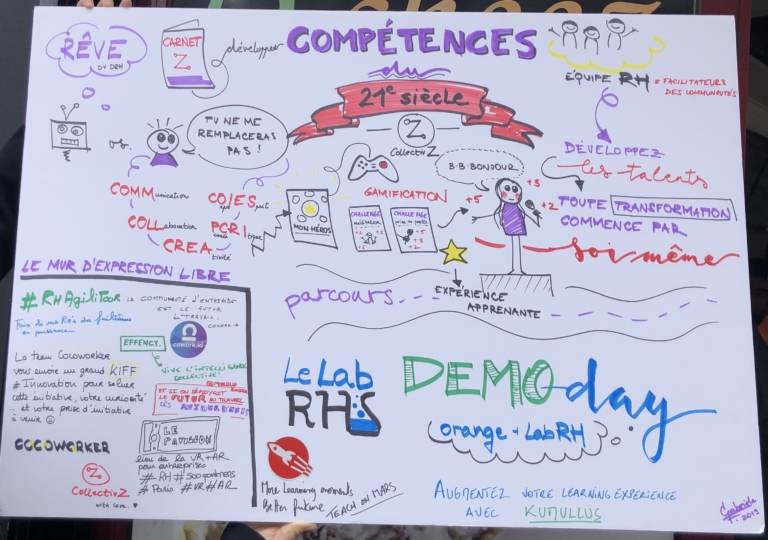 RÊVE
DU DRH
CARNET
Z
développer
COMPÉTENCES
du
21e siècle
Z
CollectivZ
ÉQUIPE RH = FACILITATEURS
DES COMMUNAUTÉS
vs.
TU NE ME
REMPLACERAS
PAS !
DÉVELOPPEZ
les talents
B-B-BONJOUR
TOUTE TRANSFORMATION
COMMENCE PAR
soi-même
COMMunication
COLLaboration
CREA
tivité
MON HÉROS
GAMIFICATION
CHALLENGE
CHALLENGE
+5
+3
+2
parcours
EXPÉRIENCE
APPRENANTE
LE MUR D'EXPRESSION LIBRE
#RHAgiliTour
LA COMMUNAUTÉ D'ENTREPRISE
EST LE FUTUR
cowork.id
EFFENCY.
VIVE L'INTELLIGENCE
COLLECTIVE!
La team Cocoworker
vous envoie un grand KIFF
#Innovation pour saluer
cette initiative, votre curiosité
et votre prise d'initiative
à venir
ET SI ON DÉMARRAIT
LE FUTUR AU TRAVAIL
DÈS AUJOURD'HUI?
COCOWORKER
LE
lieu de la VR+AR
pour entreprises
#RH #500 partners
#Paris #VR #AR
Z
CollectivZ
with love. ♥
Le Lab
RHS
DEMO day
orange + LabRH
More learning moments
Better future
TEACH ON MARS
AUGMENTEZ VOTRE LEARNING EXPERIENCE
AVEC KUMULLUS
2019